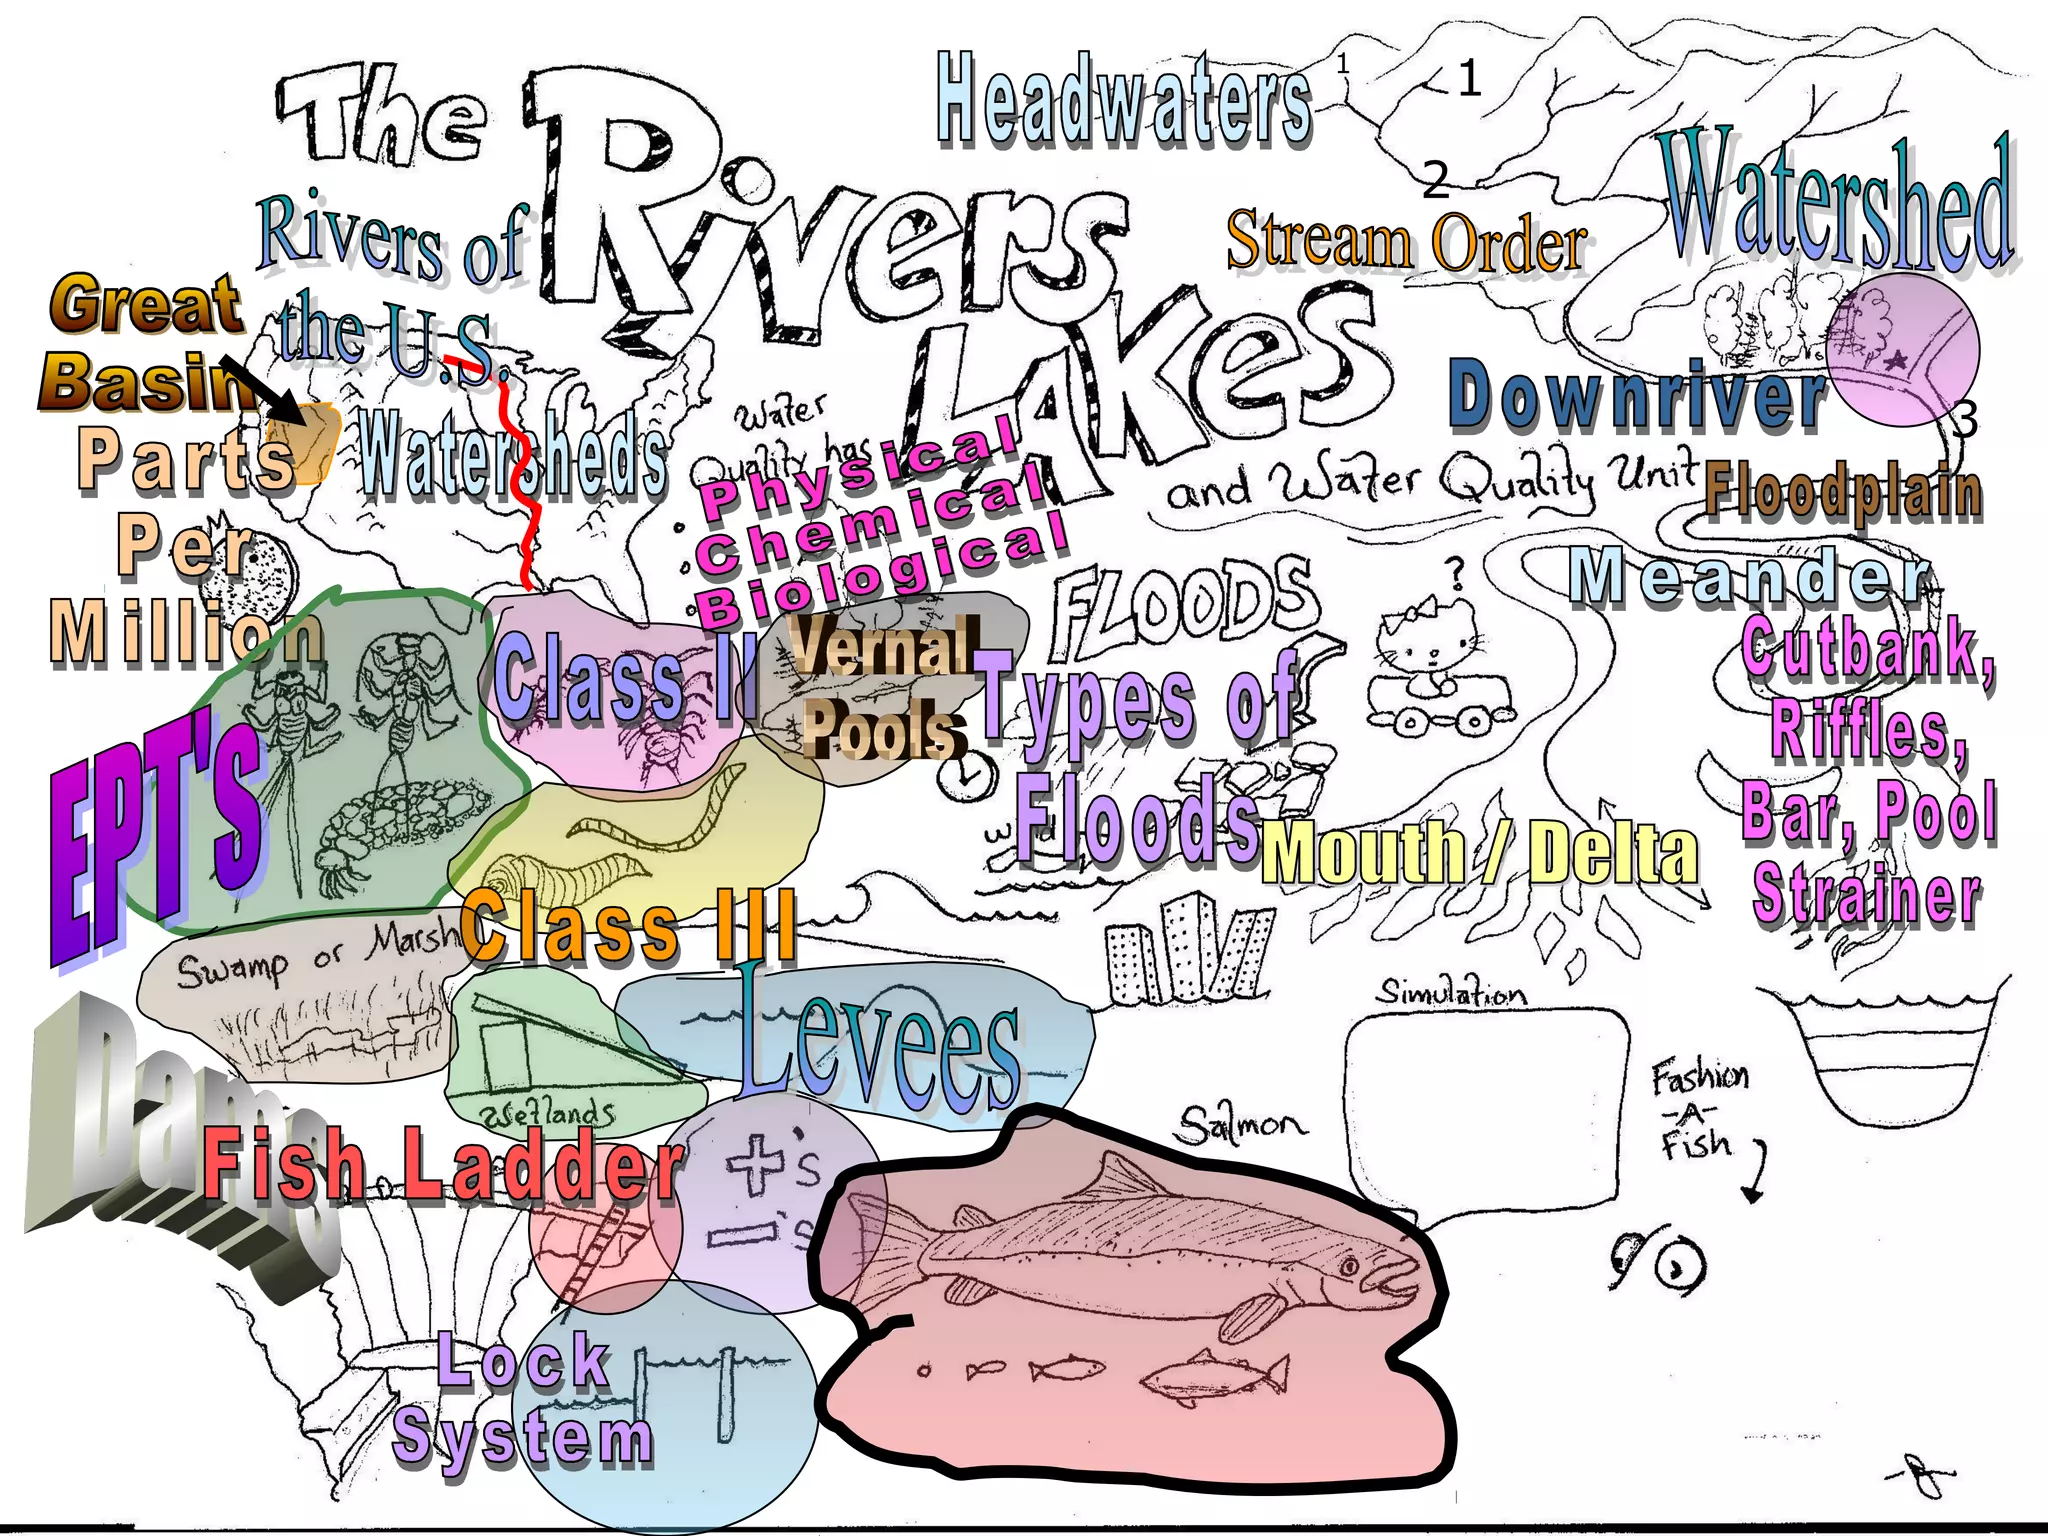 The
Rivers
Lakes
and Water Quality Unit
Headwaters
1
1
2
3
Watershed
Stream Order
Rivers of
the U.S.
Great
Basin
Watersheds
Parts
Per
Million
Water
Quality has
Physical
Chemical
Biological
Downriver
Floodplain
Meander
Cutbank,
Riffles,
Bar, Pool
Strainer
FLOODS
?
Types of
Floods
Mouth / Delta
Vernal
Pools
Class II
EPT's
Class III
Swamp or Marsh
Wetlands
Levees
Dams
Fish Ladder
+'s
-'s
Lock
System
Salmon
Simulation
Fashion
-A-
Fish